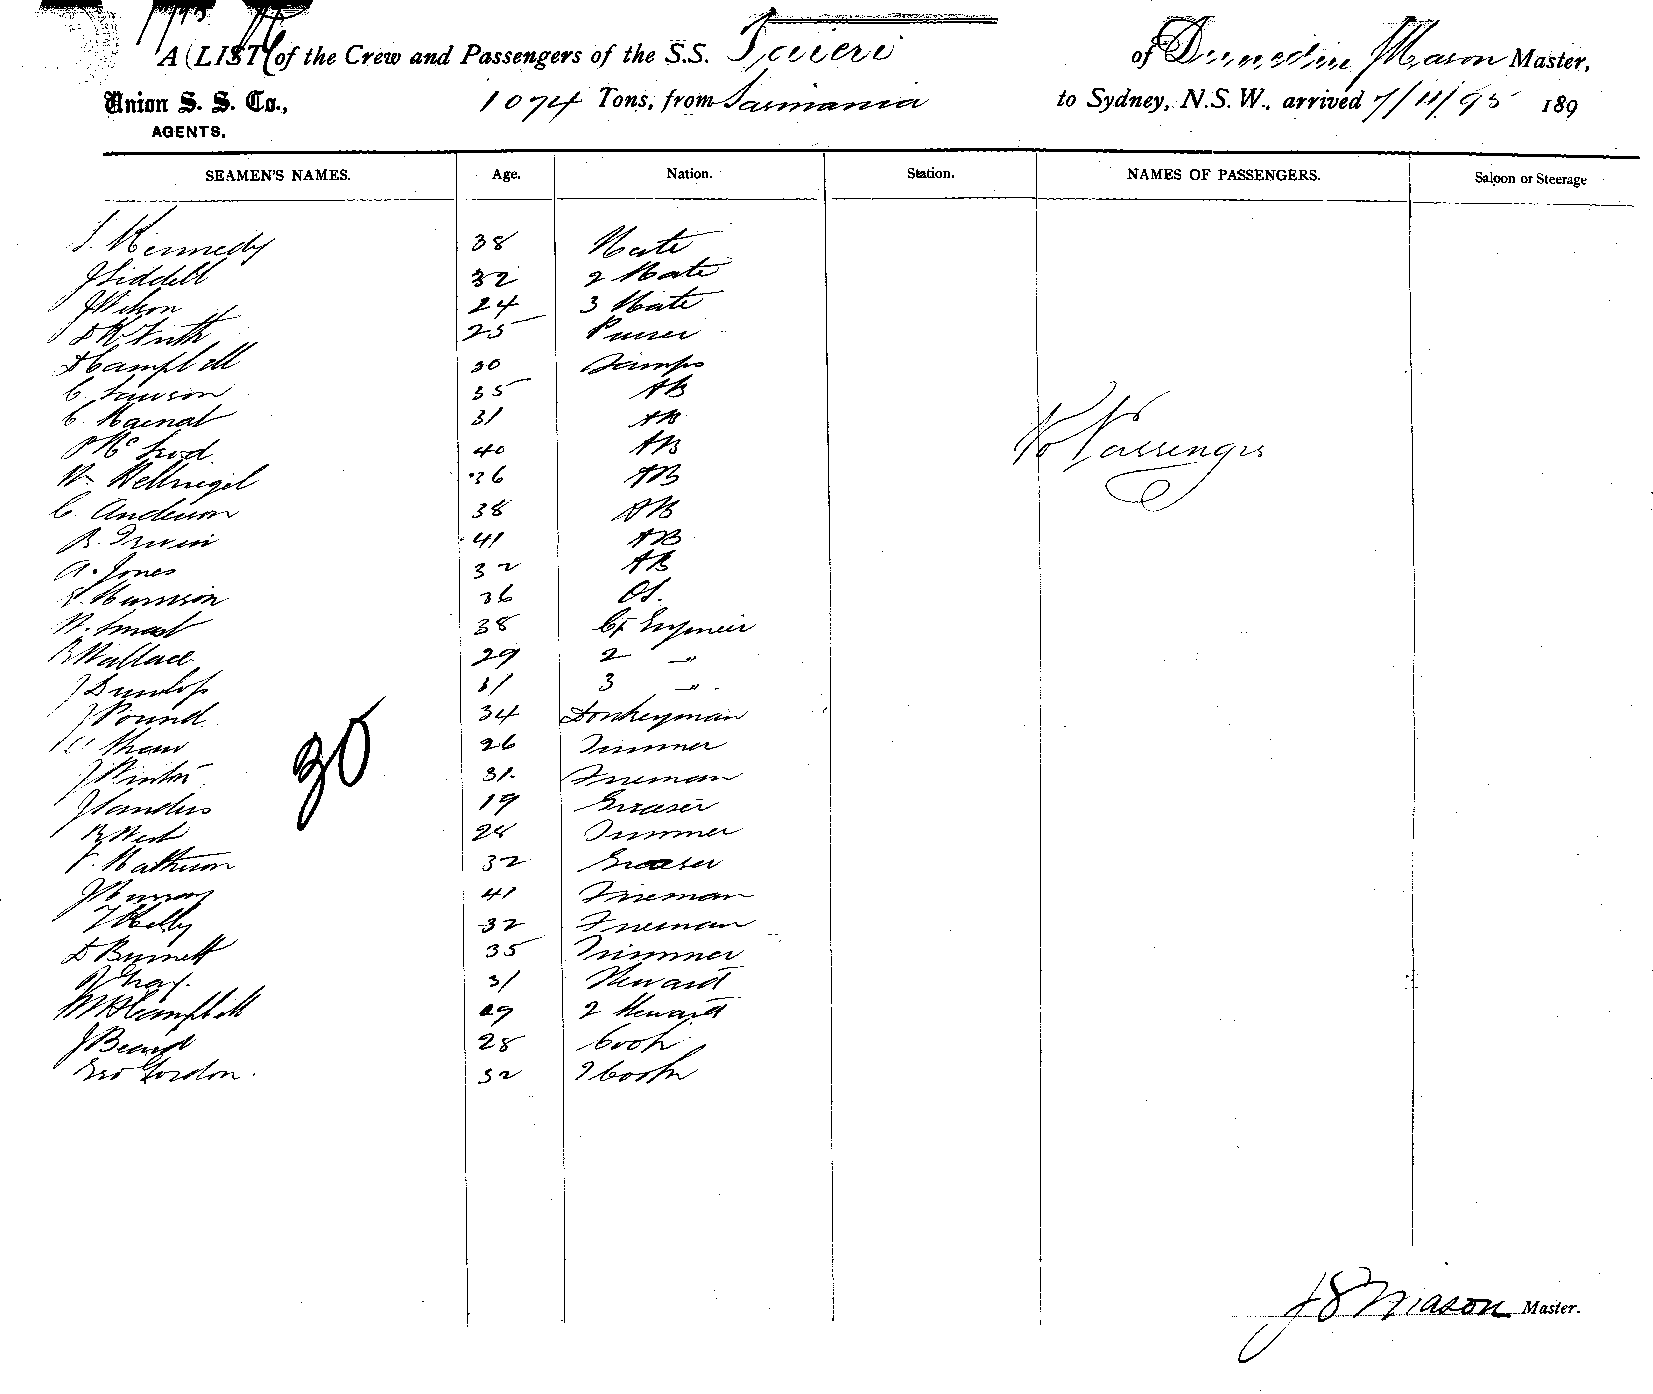 A LIST of the Crew and Passengers of the S.S. Taieri of Dunedin Mason Master,
Union S. S. Co., 1074 Tons, from Tasmania to Sydney, N.S.W., arrived 7/11/95 189
AGENTS.
SEAMEN'S NAMES. Age. Nation. Station. NAMES OF PASSENGERS. Saloon or Steerage
Kennedy 38 Mate
J Liddell 32 2 Mate
J Wilson 24 3 Mate
25 Purser
D Campbell 30 Lamps
C. Lawson 35 AB
C. 31 AB
40 AB
No Passengers
W 36 AB
C. Anderson 38 AB
R. Irwin 41 AB
A. Jones 32 AB
Harrison 36 OS.
W. Smart 38 Cf Engineer
R Wallace 29 2 "
J Dunlop 31 3 "
J Pound 34 Donkeyman
30
Shaw 26 Trimmer
J Winter 31 Fireman
J Sanders 19 Greaser
R West 28 Trimmer
Matheson 32 Greaser
J Murray 41 Fireman
T Kelly 32 Fireman
D Burnett 35 Trimmer
Gray 31 Steward
Campbell 29 2 Steward
J 28 Cook
Geo Gordon. 32 2 Cook
J S Mason Master.